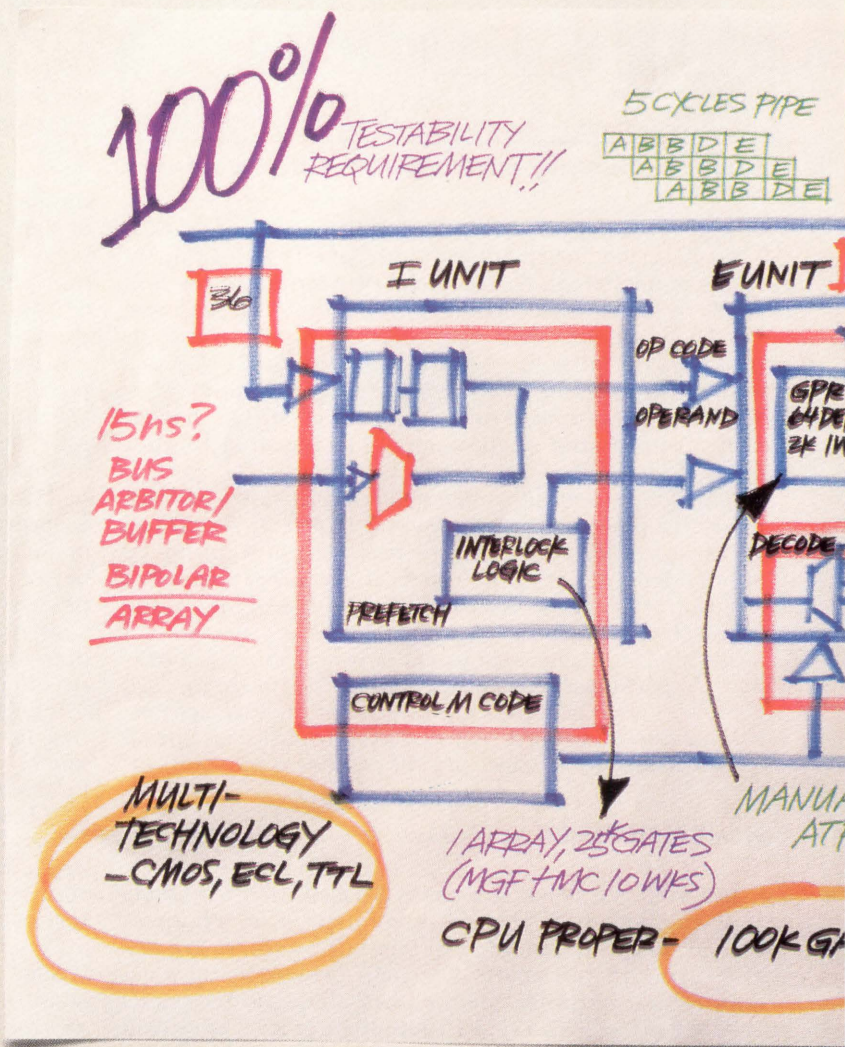 100%
TESTABILITY
REQUIREMENT!!
5 CYCLES PIPE
A B B D E
A B B D E
A B B D E
I UNIT
E UNIT
36
OP CODE
OPERAND
GPR
64 DE
2K
15ns?
BUS
ARBITOR/
BUFFER
BIPOLAR
ARRAY
INTERLOCK
LOGIC
DECODE
PREFETCH
CONTROL M CODE
MULTI-
TECHNOLOGY
-CMOS, ECL, TTL
1 ARRAY, 25K GATES
(MGF + MC 10 WKS)
MANUA
AT
CPU PROPER- 100K GA